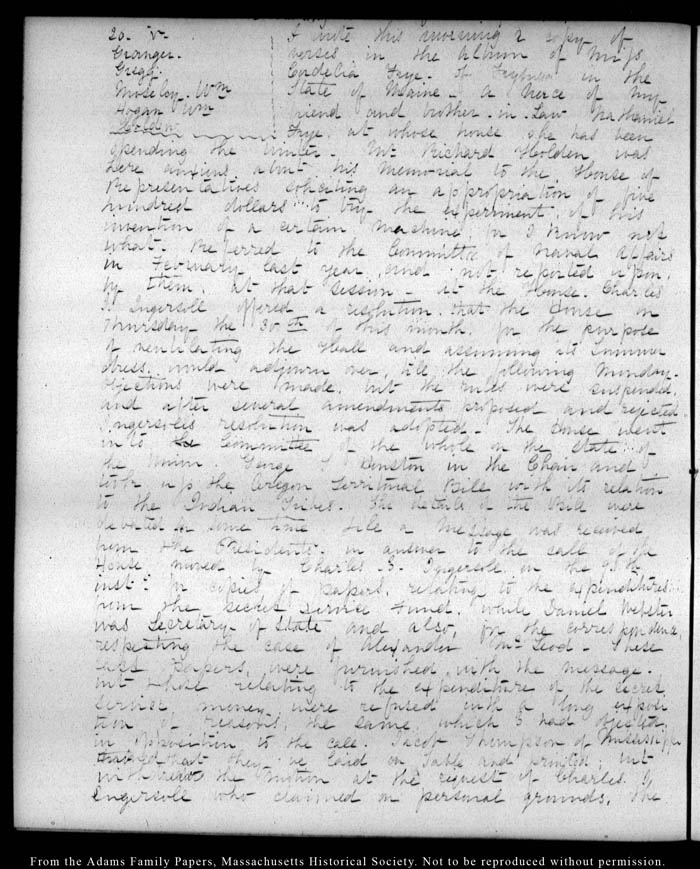 20. V.
Granger.
Gregg.
Moseley. Wm
Hogan Wm
Holden
I write this morning a copy of
verses in the album of Miss
Cordelia Frye. of Fryburg in the
State of Maine - a niece of my
friend and brother-in-Law Nathaniel
Frye. at whose house she has been
spending the winter - Mr Richard Holden was
here anxious about his memorial to the House of
Representatives soliciting an appropriation of five
hundred dollars to try the experiment of his
invention of a certain machine for I know not
what. Referred to the Committee of Naval Affairs
in February last year, and not reported upon
by them, at that session - At the House. Charles
J. Ingersoll offered a resolution that the House on
Thursday the 30th of this month for the purpose
of ventilating the Hall and assuming its Summer
dress, would adjourn over, till the following Monday -
objections were made, but the rules were suspended,
and after several amendments proposed and rejected
Ingersoll's resolution was adopted - The House went
into the Committee of the whole on the state of
the Union. George S. Houston in the Chair and
took up the Oregon Territorial Bill with its relation
to the Indian Tribes. The details of the Bill were
debated for some time till a message was received
from the President. in answer to the call of the
House moved by Charles J. Ingersoll on the 9th
inst. for copies of papers, relating to the expenditures
from the secret service Fund, while Daniel Webster
was Secretary of State and also, for the correspondence,
respecting the case of Alexander McLeod - These
last papers, were furnished with the message.
but those relating to the expenditure of the secret
service money were refused with a long exposi
tion of reasons, the same which I had objected,
in opposition to the call. Jacob Thompson of Mississippi
moved that they be laid on table and printed; but
withdrew the motion at the request of Charles J.
Ingersoll who claimed on personal grounds, the
From the Adams Family Papers, Massachusetts Historical Society. Not to be reproduced without permission.